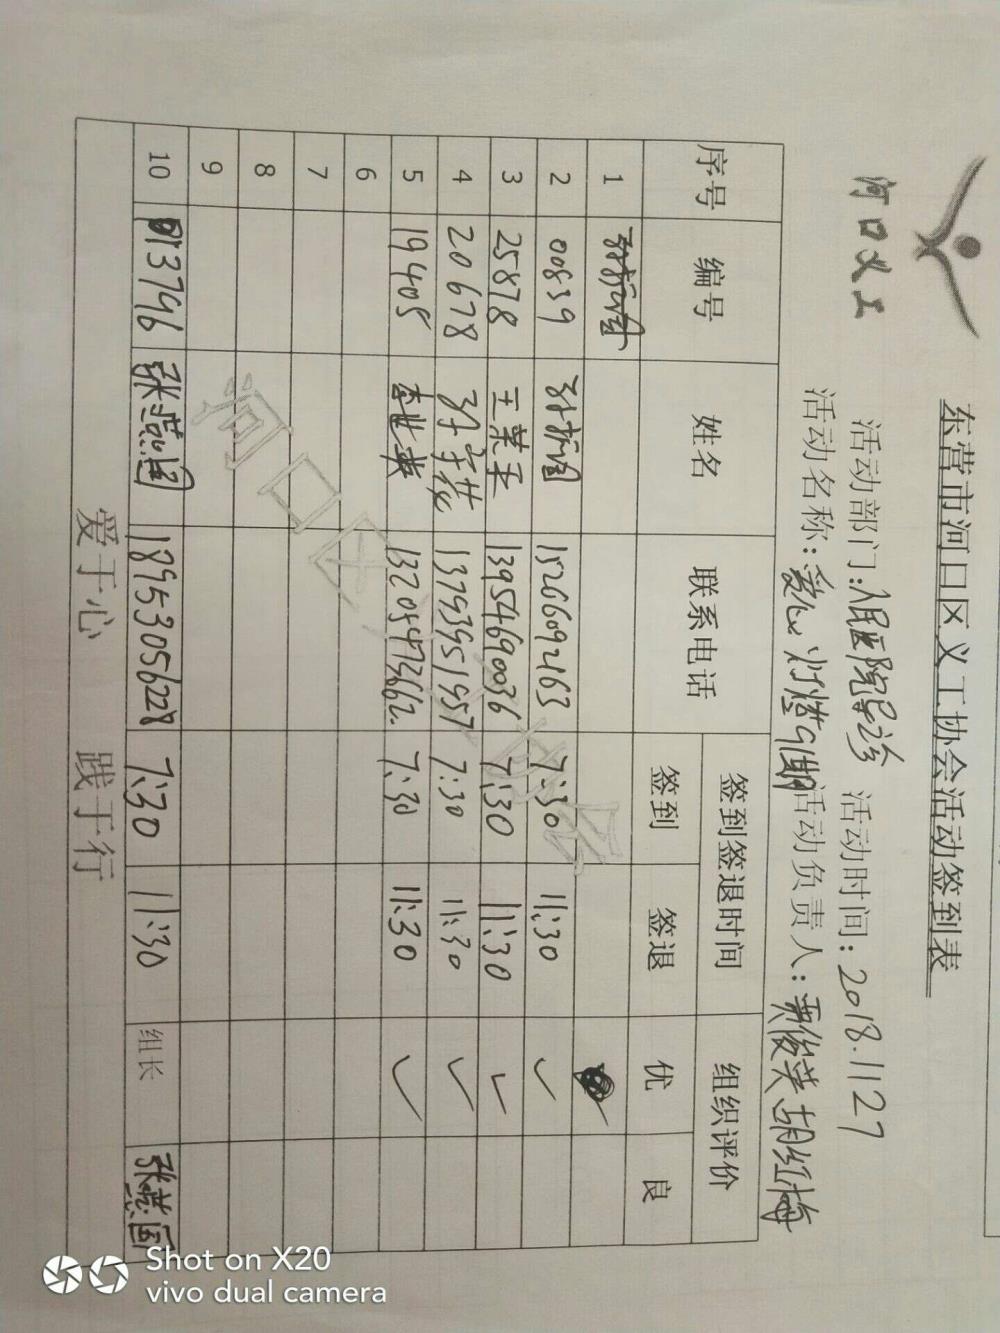 河口义工
东营市河口区义工协会活动签到表
活动部门:人民医院导诊 活动时间:2018.11.27
活动名称:爱心灯燃9期 活动负责人:贾俊英 胡红梅
序号 编号 姓名 联系电话 签到签退时间 组织评价
签到 签退 优 良
1
2 00839 15266092163 7:30 11:30 ✓
3 25878 王荣季 13954690036 7:30 11:30 ✓
4 20678 13793951957 7:30 11:30 ✓
5 19405 13205473662 7:30 11:30 ✓
6
7
8
9
10 013796 张志国 18953056228 7:30 11:30 组长 张志国
爱于心 践于行
Shot on X20
vivo dual camera